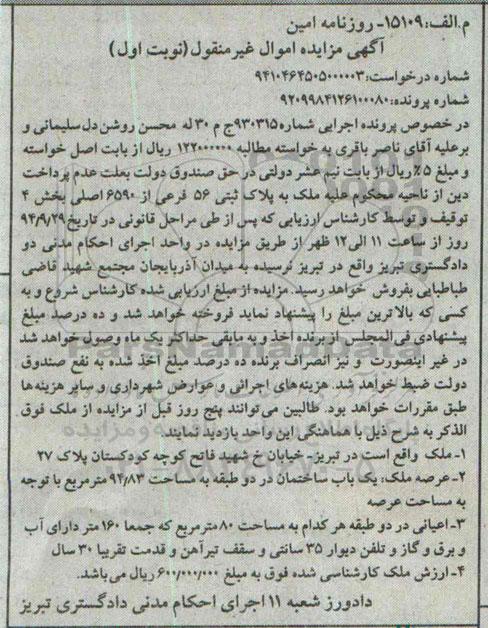 م.الف:۱۵۱۰۹- روزنامه امین
آگهی مزایده اموال غیرمنقول (نوبت اول)
شماره درخواست:۹۴۱۰۴۶۴۵۰۵۰۰۰۰۰۳
شماره پرونده:۹۲۰۹۹۸۴۱۲۶۱۰۰۰۸۰
در خصوص پرونده اجرایی شماره۹۳۰۳۱۵ج م ۳۰ له محسن روشن دل سلیمانی و
برعلیه آقای ناصر باقری به خواسته مطالبه ۱۲۲۰۰۰۰۰۰ ریال از بابت اصل خواسته
و مبلغ ۵٪ریال از بابت نیم عشر دولتی در حق صندوق دولت بعلت عدم پرداخت
دین از ناحیه محکوم علیه ملک به پلاک ثبتی ۵۶ فرعی از ۶۵۹۰ اصلی بخش ۴
توقیف و توسط کارشناس ارزیابی که پس از طی مراحل قانونی در تاریخ ۹۴/۹/۲۹
روز از ساعت ۱۱ الی ۱۲ ظهر از طریق مزایده در واحد اجرای احکام مدنی دو
دادگستری تبریز واقع در تبریز نرسیده به میدان آذربایجان مجتمع شهید قاضی
طباطبایی بفروش خواهد رسید. مزایده از مبلغ ارزیابی شده کارشناس شروع و به
کسی که بالاترین مبلغ را پیشنهاد نماید فروخته خواهد شد و ده درصد مبلغ
پیشنهادی فی المجلس از برنده اخذ و به مابقی حداکثر یک ماه وصول خواهد شد
در غیر اینصورت و نیز انصراف برنده ده درصد مبلغ اخذ شده به نفع صندوق
دولت ضبط خواهد شد. هزینه‌های اجرائی و عوارض شهرداری و سایر هزینه‌ها
طبق مقررات خواهد بود. طالبین می‌توانند پنج روز قبل از مزایده از ملک فوق
الذکر به شرح ذیل با هماهنگی این واحد بازدید نمایند
۱- ملک واقع است در تبریز- خیابان خ شهید فاتح کوچه کودکستان پلاک ۲۷
۲- عرصه ملک: یک باب ساختمان در دو طبقه به مساحت ۹۴/۸۳ مترمربع با توجه
به مساحت عرصه
۳- اعیانی در دو طبقه هر کدام به مساحت ۸۰ مترمربع که جمعا ۱۶۰ متر دارای آب
و برق و گاز و تلفن دیوار ۳۵ سانتی و سقف تیرآهن و قدمت تقریبا ۳۰ سال
۴- ارزش ملک کارشناسی شده فوق به مبلغ ۶۰۰/۰۰۰/۰۰۰ ریال می باشد.
دادورز شعبه ۱۱ اجرای احکام مدنی دادگستری تبریز